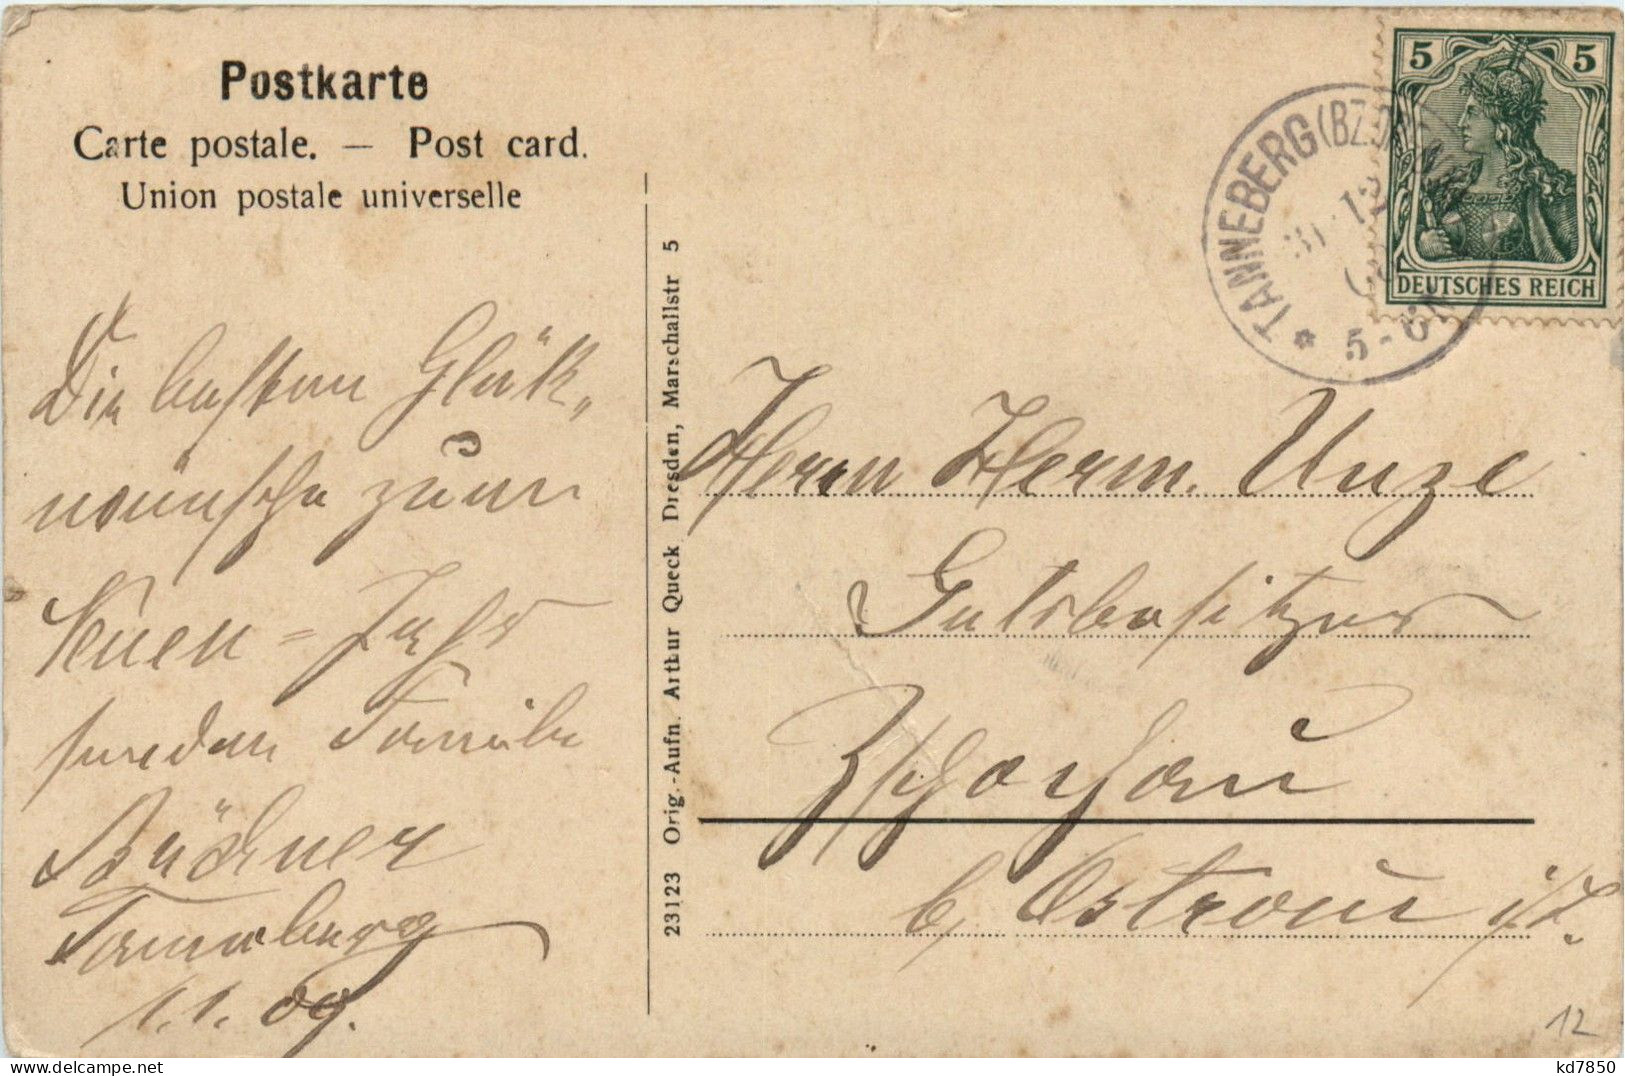 Postkarte
Carte postale. — Post card.
Union postale universelle
Die besten Glück-
wünsche zum
Neuen-Jahr
senden Familie
Büchner
Tanneberg
1.1.09.
23123 Orig.-Aufn. Arthur Queck Dresden, Marschallstr 5
TANNEBERG (BZ.D
31.12
5-6N
5 5
DEUTSCHES REICH
Herrn Herm. Unze
Gutsbesitzer
Zschochau
b. Ostrau i/S.
12
kd7850